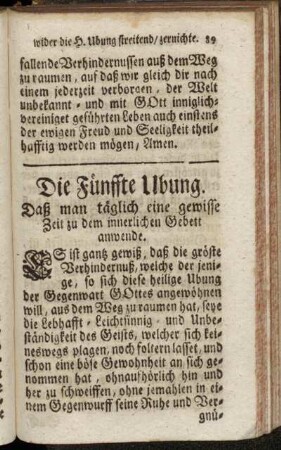 wider die H. Ubung streitend/ zernichte. 89
fallende Verhindernussen auß dem Weg
zu raumen, auf daß wir gleich dir nach
einem jederzeit verborgen, der Welt
unbekannt- und mit GOtt inniglich-
vereiniget geführten Leben auch einstens
der ewigen Freud und Seeligkeit theil-
hafftig werden mögen, Amen.
Die Fünffte Ubung.
Daß man täglich eine gewisse
Zeit zu dem innerlichen Gebett
anwende.
ES ist gantz gewiß, daß die gröste
Verhindernuß, welche der jeni-
ge, so sich diese heilige Ubung
der Gegenwart GOttes angewöhnen
will, aus dem Weg zu raumen hat, seye
die Lebhafft- Leichtsinnig- und Unbe-
ständigkeit des Geists, welcher sich kei-
neswegs plagen, noch foltern lasset, und
schon eine böse Gewohnheit an sich ge-
nommen hat, ohnaufhörlich hin und
her zu schweiffen, ohne jemahlen in ei-
nem Gegenwurff seine Ruhe und Ver-
gnü-